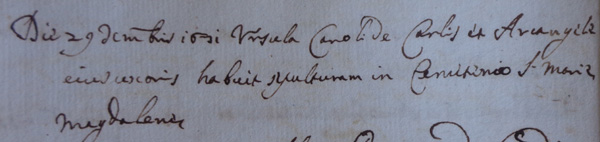 Die 29 dcmbris 1631 Vrsula Caroli de Carlis et Arcangele
eius uxoris habuit sepulturam in Cemiterio S. Marie
Magdalene